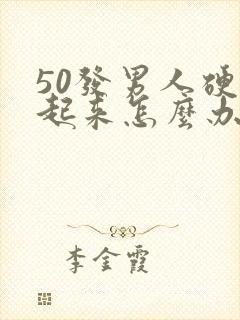 50發男人硬
起来怎麼办
李金霞